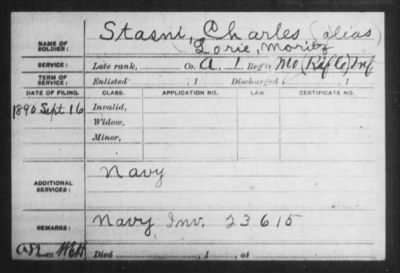 NAME OF SOLDIER: Stasni, Charles (alias)
Lorie, Moritz
SERVICE: Late rank, Co. A, 1 Reg't Mo (Rifle) Inf
TERM OF SERVICE: Enlisted , 1 Discharged , 1
DATE OF FILING. CLASS. APPLICATION NO. LAW. CERTIFICATE NO.
1890 Sept. 16 Invalid,
Widow,
Minor,
ADDITIONAL SERVICES: Navy
REMARKS: Navy Inv. 23615
Died , 1 , at